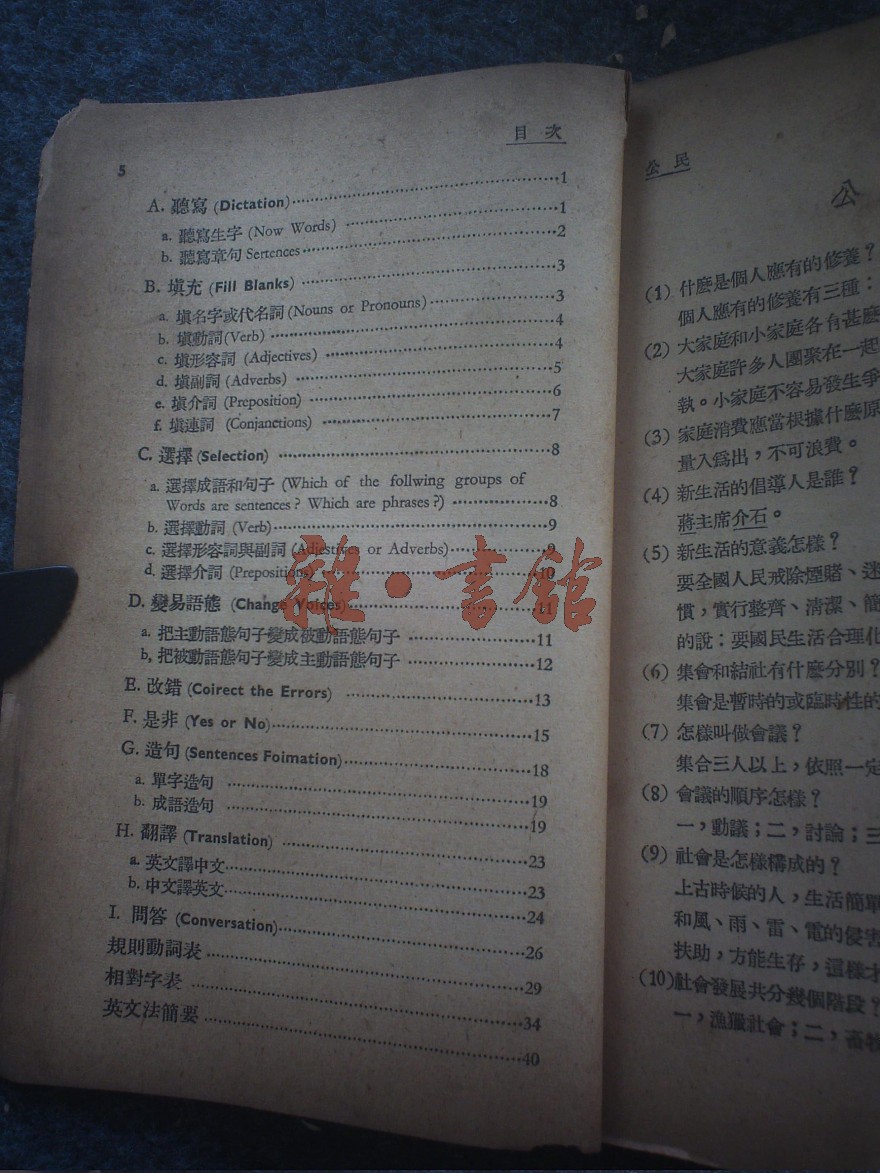 目次
5
A. 聽寫 (Dictation)⋯⋯1
a. 聽寫生字 (Now Words)⋯⋯1
b. 聽寫章句 Sertences⋯⋯2
B. 填充 (Fill Blanks)⋯⋯3
a. 填名字或代名詞 (Nouns or Pronouns)⋯⋯3
b. 填動詞 (Verb)⋯⋯4
c. 填形容詞 (Adjectives)⋯⋯4
d. 填副詞 (Adverbs)⋯⋯5
e. 填介詞 (Preposition)⋯⋯6
f. 填連詞 (Conjanctions)⋯⋯7
C. 選擇 (Selection)⋯⋯8
a. 選擇成語和句子 (Which of the follwing groups of
Words are sentences? Which are phrases?)⋯⋯8
b. 選擇動詞 (Verb)⋯⋯9
c. 選擇形容詞與副詞 (Adjestives or Adverbs)⋯⋯9
d. 選擇介詞 (Prepositions)⋯⋯10
D. 變易語態 (Change Voices)⋯⋯11
a. 把主動語態句子變成被動語態句子⋯⋯11
b, 把被動語態句子變成主動語態句子⋯⋯12
E. 改錯 (Coirect the Errors)⋯⋯13
F. 是非 (Yes or No)⋯⋯15
G. 造句 (Sentences Foimation)⋯⋯18
a. 單字造句⋯⋯19
b. 成語造句⋯⋯19
H. 翻譯 (Translation)⋯⋯23
a. 英文譯中文⋯⋯23
b. 中文譯英文⋯⋯24
I. 問答 (Conversation)⋯⋯26
規則動詞表⋯⋯29
相對字表⋯⋯34
英文法簡要⋯⋯40
雜·書館
公民
公
(1) 什麼是個人應有的修養?
個人應有的修養有三種:
(2) 大家庭和小家庭各有甚麼
大家庭許多人團聚在一起
執。小家庭不容易發生爭
(3) 家庭消費應當根據什麼原
量入爲出,不可浪費。
(4) 新生活的倡導人是誰?
蔣主席介石。
(5) 新生活的意義怎樣?
要全國人民戒除煙賭、迷
慣,實行整齊、清潔、簡
的說:要國民生活合理化
(6) 集會和結社有什麼分別?
集會是暫時的或臨時性的
(7) 怎樣叫做會議?
集合三人以上,依照一定
(8) 會議的順序怎樣?
一,動議;二,討論;三
(9) 社會是怎樣構成的?
上古時候的人,生活簡單
和風、雨、雷、電的侵害
扶助,方能生存,這樣才
(10) 社會發展共分幾個階段?
一,漁獵社會;二,畜牧